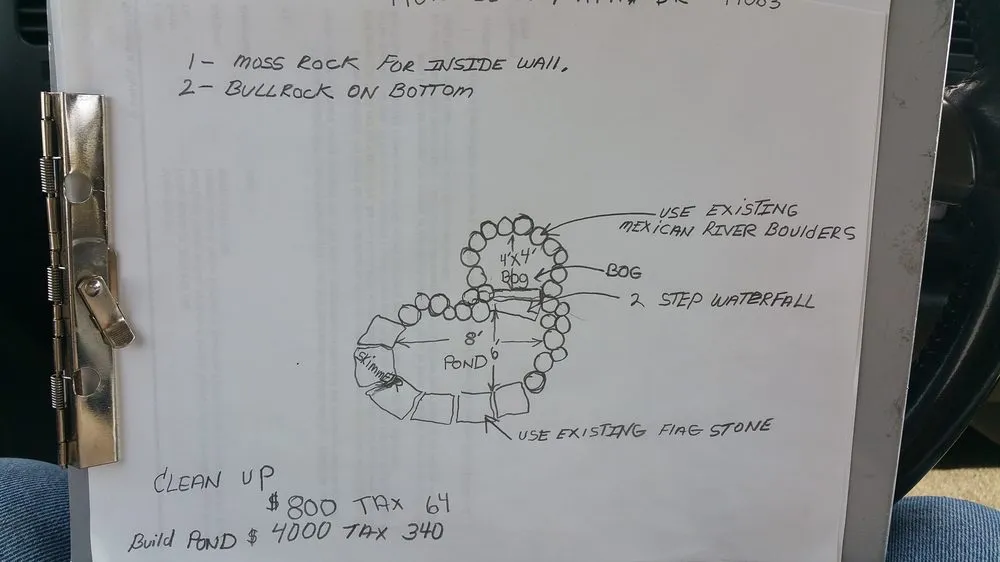 1- MOSS ROCK FOR INSIDE WALL.
2- BULLROCK ON BOTTOM
USE EXISTING
MEXICAN RIVER BOULDERS
4'X4'
Bog
BOG
2 STEP WATERFALL
8'
POND 6'
Skimmer
USE EXISTING FLAG STONE
CLEAN UP
$800 TAX 64
Build POND $4000 TAX 340